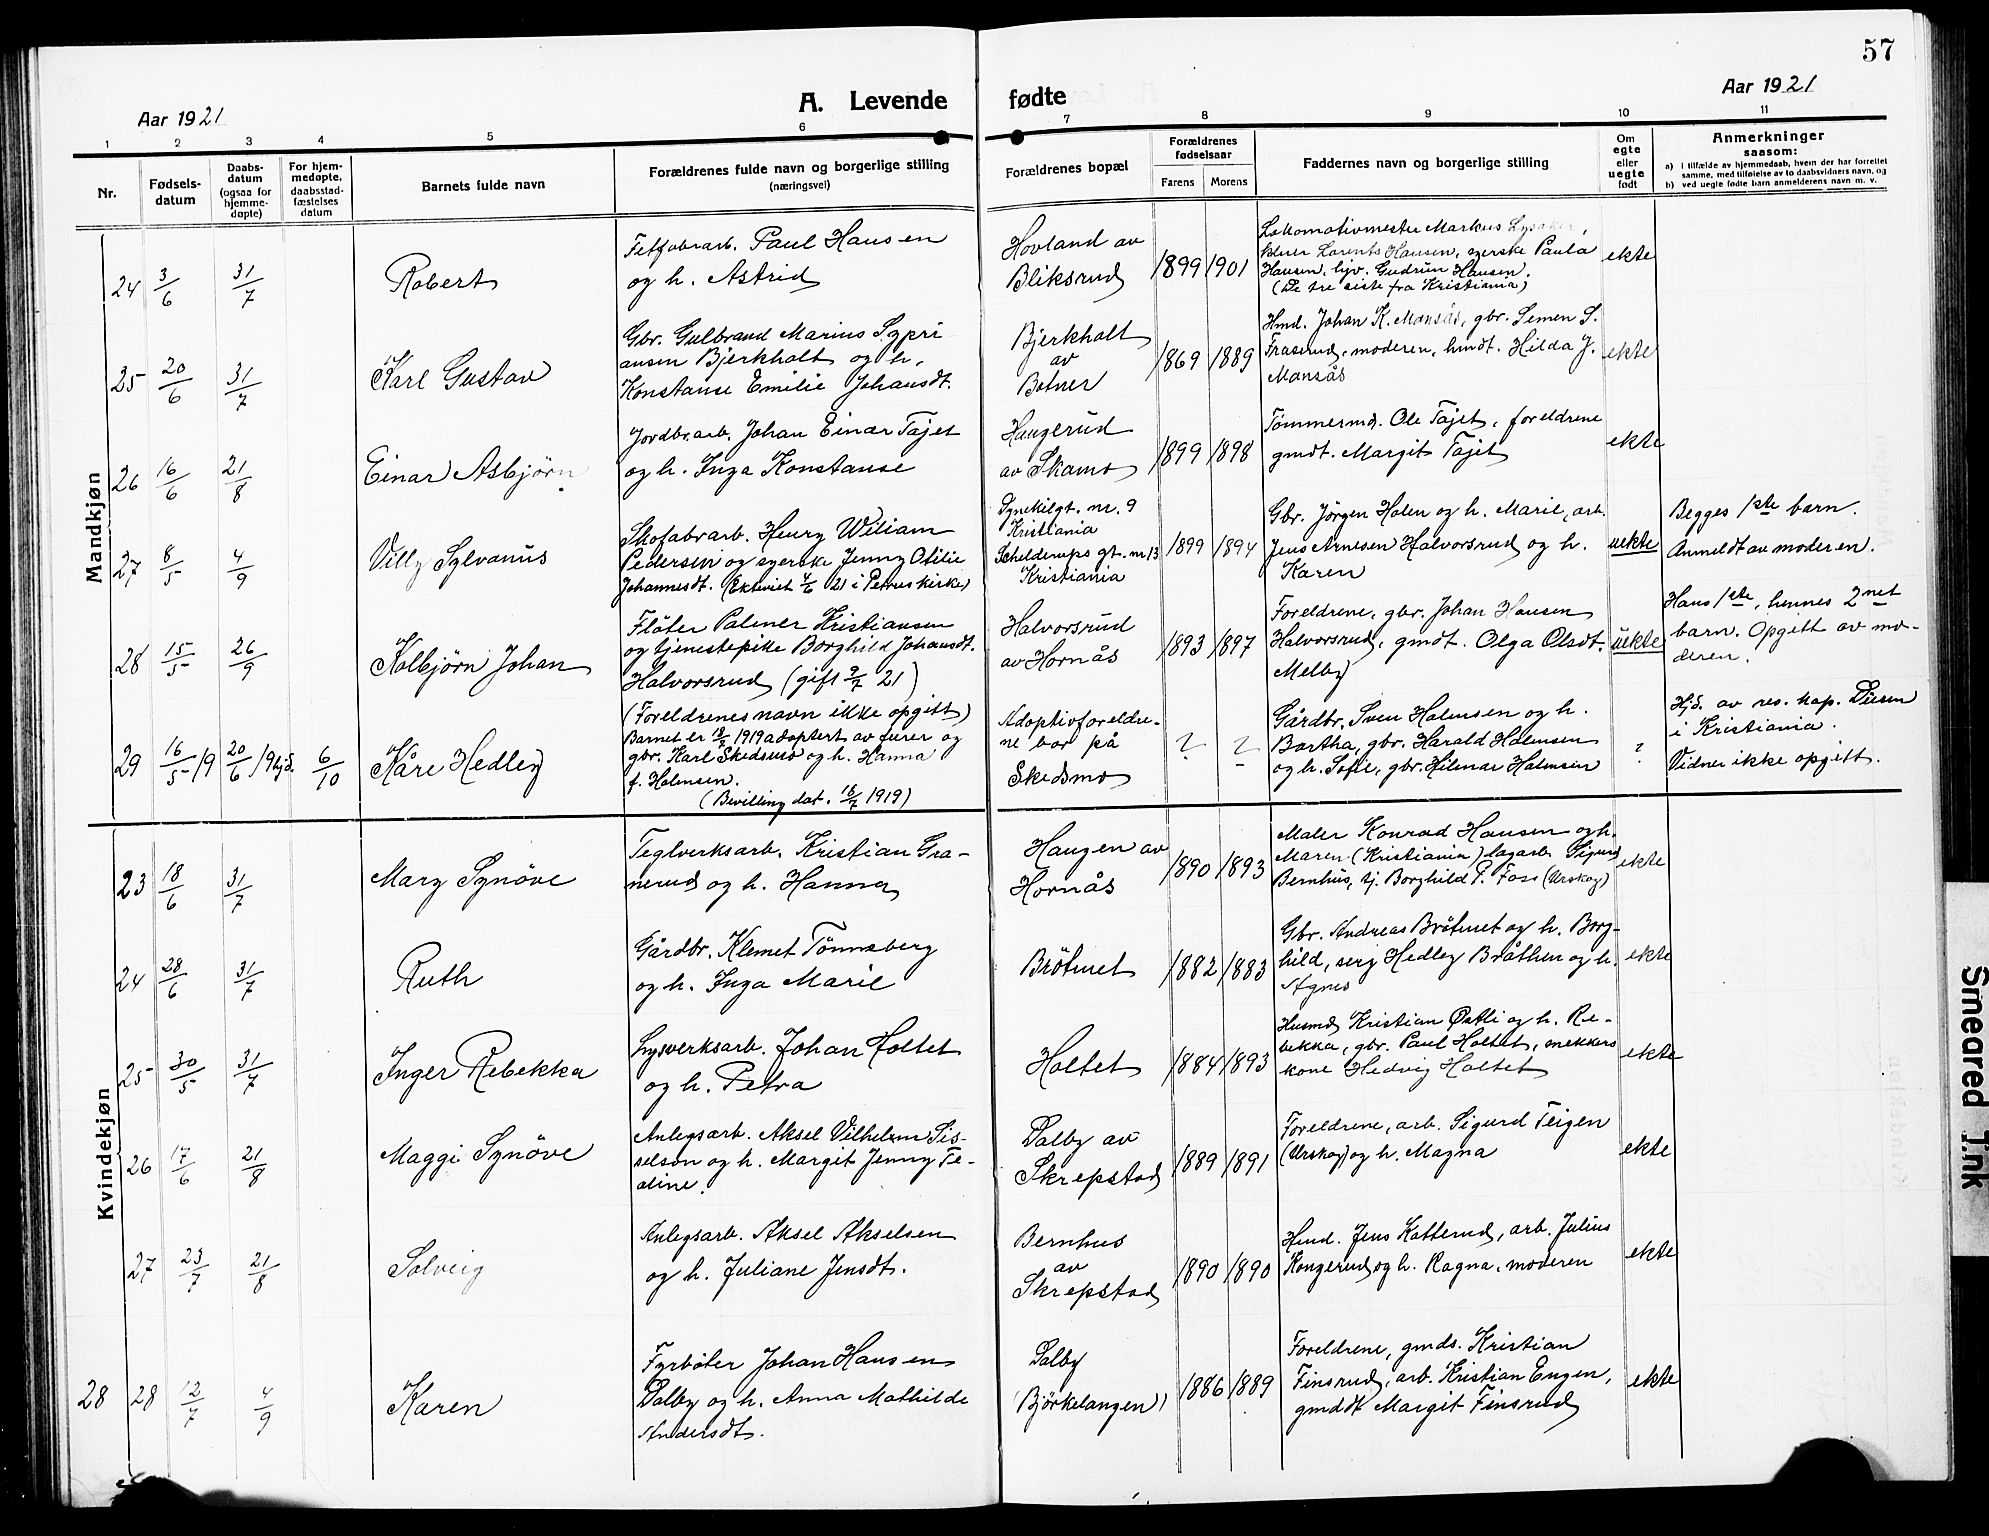 57
Aar 1921
A. Levende fødte
Aar 1921
1 2 3 4 5 6 7 8 9 10 11
Nr.
Fødsels-
datum
Daabs-
datum
(ogsaa for
hjemme-
døpte)
For hjem-
medøpte,
daabsstad-
fæstelses
datum
Barnets fulde navn
Forældrenes fulde navn og borgerlige stilling
(næringsvei)
Forældrenes bopæl
Forældrenes
fødselsaar
Farens Morens
Faddernes navn og borgerlige stilling
Om
egte
eller
uegte
født
Anmerkninger
saasom:
a) i tilfælde av hjemmedaab, hvem der har forrettet
samme, med tilføielse av to daabsvidners navn, og
b) ved uegte fødte barn anmelderens navn m. v.
Mandkjøn
24 3/6 31/7 Robert
Fetfabrarb. Paul Hansen
og h. Astrid
Hovland av
Bliksrud
1899 1901
Lokomotivmester Markus Lysaker,
Lorents Hansen, syerske Paula
Hansen, Gudrun Hansen.
(De tre siste fra Kristiania)
ekte
25 20/6 31/7 Karl Gustav
Gbr. Gulbrand Marius Sypri-
ansen Bjerkholt og h.
Konstanse Emilie Johansdt.
Bjerkholt
av
Botner
1869 1889
Hmd. Johan K. Mansås, gbr. Semen S.
Fraserud, moderen, hmdt. Hilda J.
Mansås
ekte
26 16/6 21/8 Einar Asbjörn
Jordbr.arb. Johan Einar Tajet
og h. Inga Konstanse
Haugerud
av Skamo
1899 1898
Tömmermd. Ole Tajet, foreldrene
gmdt. Margit Tajet
ekte
27 8/5 4/9 Villy Sylvanus
Skofabrarb. Henry Wiliam
Pedersen og syerske Jenny Otilie
Johannesdt. (Ekteviet 4/6 21 i Petrus kirke)
nr. 9
Kristiania
Schelderups gt. nr. 13
Kristiania
1899 1894
Gbr. Jørgen Holen og h. Marie, arb.
Jens Arnesen Halvorsrud og h.
Karen
uekte
Begges 1ste barn.
Anmeldt av moderen.
28 15/5 26/9 Kolbjörn Johan
Flöter Palmer Kristiansen
og tjenestepike Borghild Johansdt.
Halvorsrud (gift 9/7 21)
Halvorsrud
av Hornås
1893 1897
Foreldrene, gbr. Johan Hansen
Halvorsrud, gmdt. Olga Olsdt.
Melby
uekte
Hans 1ste, hennes 2net
barn. Opgitt av mo-
deren.
29 16/5 /19 20/6 /19 hjd. 6/10 Kåre Hedley
(Foreldrenes navn ikke opgitt)
Barnet er 18/7 1919 adoptert av og
gbr. Karl Skedsmo og h. Hanna
f. Holmsen.
(Bevilling dat. 18/7 1919)
Adoptivforeldre-
ne bor på
Skedsmo
? ?
Gårdbr. Sven Holmsen og h.
Bertha, gbr. Harald Holmsen
og h. Sofie, gbr. Hilmar Holmsen
?
Hjd. av res. kap.
i Kristiania.
Vidner ikke opgitt.
Kvindekjøn
23 18/6 31/7 Mary Synöve
Teglverksarb. Kristian Gra-
nerud og h. Hanna
Haugen av
Hornås
1890 1893
Maler Konrad Hansen og h.
Maren (Kristiania) Sigurd
Bernhus, tj. Borghild P. Foss (Urskog)
ekte
24 28/6 31/7 Ruth
Gårdbr. Klemet Tönnsberg
og h. Inga Marie
Bröttuet
1882 1883
Gbr. Andreas Bröttuet og h. Borg-
hild, serj Hedley Bråthen og h.
Agnes
ekte
25 30/5 31/7 Inger Rebekka
Lysverksarb. Johan Holtet
og h. Petra
Holtet
1884 1893
Husmd Kristian Østli og h. Re-
bekka, gbr. Paul Holtet, snekkers
kone Hedvig Holtet
ekte
26 17/6 21/8 Maggi Synöve
Anlegsarb. Aksel Vilhelm Sis-
selson og h. Margit Jenny Te-
oline.
Dalby av
Skrepstad
1889 1891
Foreldrene, arb. Sigurd Teigen
(Urskog) og h. Magna
ekte
27 23/7 21/8 Solveig
Anlegsarb. Aksel Akselsen
og h. Juliane Jensdt.
Bernhus
av
Skrepstad
1890 1890
Hmd. Jens Katterud, arb. Julius
Kongerud og h. Ragna, moderen
ekte
28 28 12/7 4/9 Karen
Fyrböter Johan Hansen
Dalby og h. Anna Mathilde
Andersdt.
Dalby
(Björkelangen)
1886 1889
Foreldrene, gmds. Kristian
Finsrud, arb. Kristian Engen,
gmddt Margit Finsrud
ekte
Smeared Ink